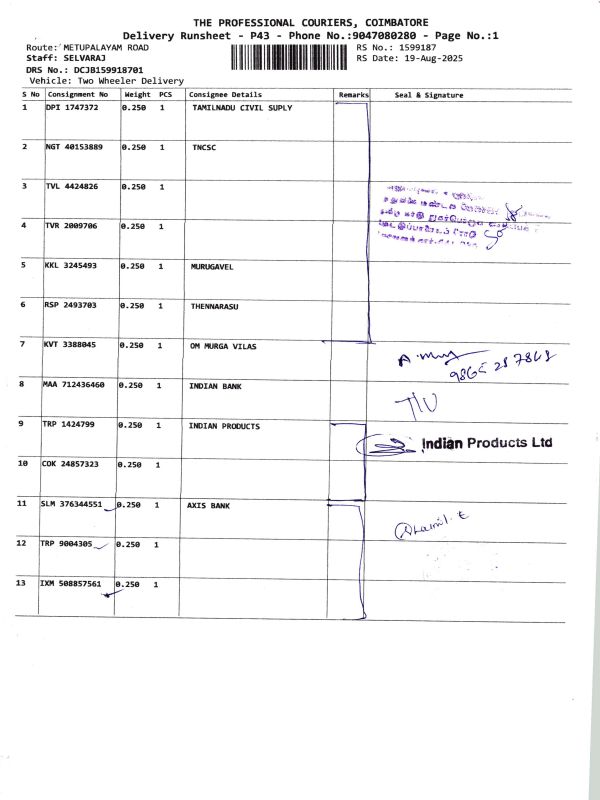 THE PROFESSIONAL COURIERS, COIMBATORE
Delivery Runsheet - P43 - Phone No.:9047080280 - Page No.:1
Route: METUPALAYAM ROAD
RS No.: 1599187
Staff: SELVARAJ
RS Date: 19-Aug-2025
DRS No.: DCJB159918701
Vehicle: Two Wheeler Delivery
S No Consignment No Weight PCS Consignee Details Remarks Seal & Signature
1 DPI 1747372 0.250 1 TAMILNADU CIVIL SUPLY
2 NGT 40153889 0.250 1 TNCSC
3 TVL 4424826 0.250 1
4 TVR 2009706 0.250 1
5 KKL 3245493 0.250 1 MURUGAVEL
6 RSP 2493703 0.250 1 THENNARASU
7 KVT 3388045 0.250 1 OM MURGA VILAS
8 MAA 712436460 0.250 1 INDIAN BANK
9 TRP 1424799 0.250 1 INDIAN PRODUCTS
Indian Products Ltd
10 COK 24857323 0.250 1
11 SLM 376344551 0.250 1 AXIS BANK
12 TRP 9004305 0.250 1
13 IXM 508857561 0.250 1